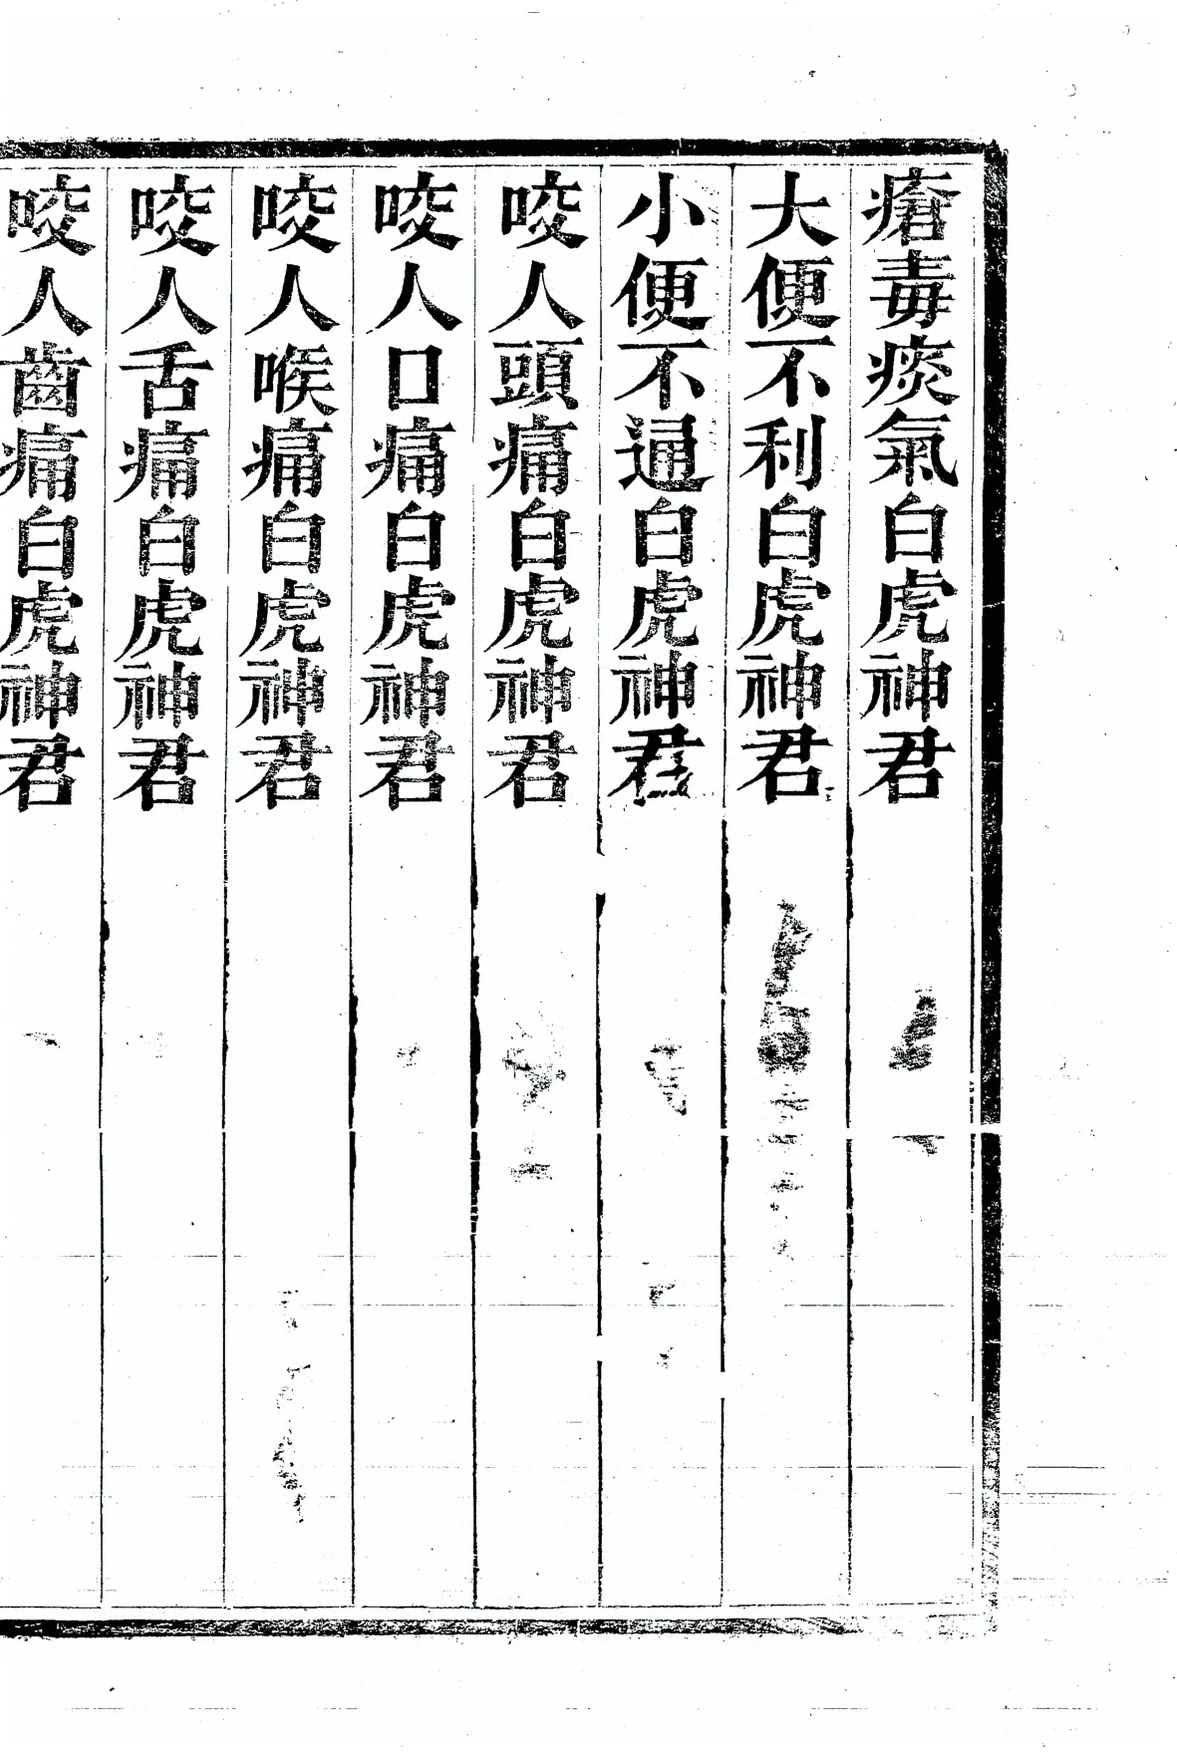 瘡毒痰氣白虎神君
大便不利白虎神君
小便不通白虎神君
咬人頭痛白虎神君
咬人口痛白虎神君
咬人喉痛白虎神君
咬人舌痛白虎神君
咬人齒痛白虎神君